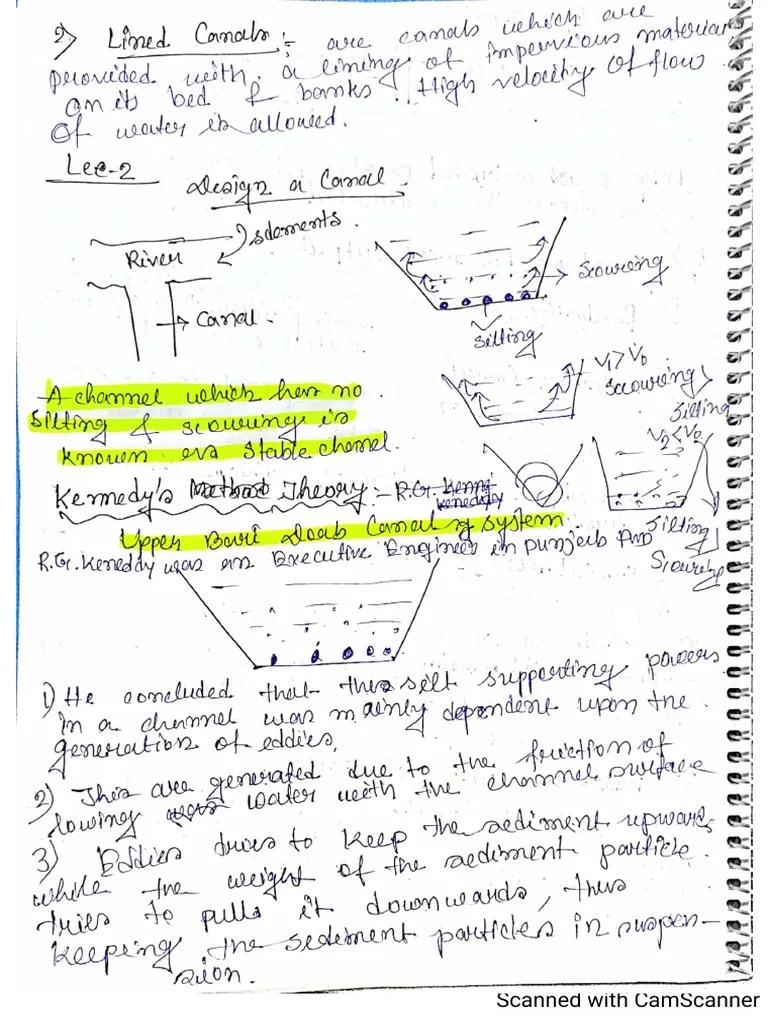 2) Lined Canals :- are canals which are
provided with a lining of impervious material
on its bed & banks. High velocity of flow
of water is allowed.
Lec-2
Design a Canal
sdements.
River
Canal.
scouring
silting
A channel which has no
silting & scouring is
known as stable chanel.
V1 > V0
scouring
silting
V2 < V0
Kennedy's Method Theory :- R.G. Kenn
keneddy
Upper Bari Doab Canal system
silting
R.G. Keneddy was an Executive Engineer in punjab And
Scouring
1) He concluded that the silt supporting powers
in a channel was mainly dependent upon the
generation of eddies.
2) This are generated due to the friction of
lowing water with the channel surface
3) Eddies tries to keep the sediment upwards
while the weight of the sediment particle
tries to pulls it downwards, thus
keeping the sediment particles in suspen-
sion.
Scanned with CamScanner